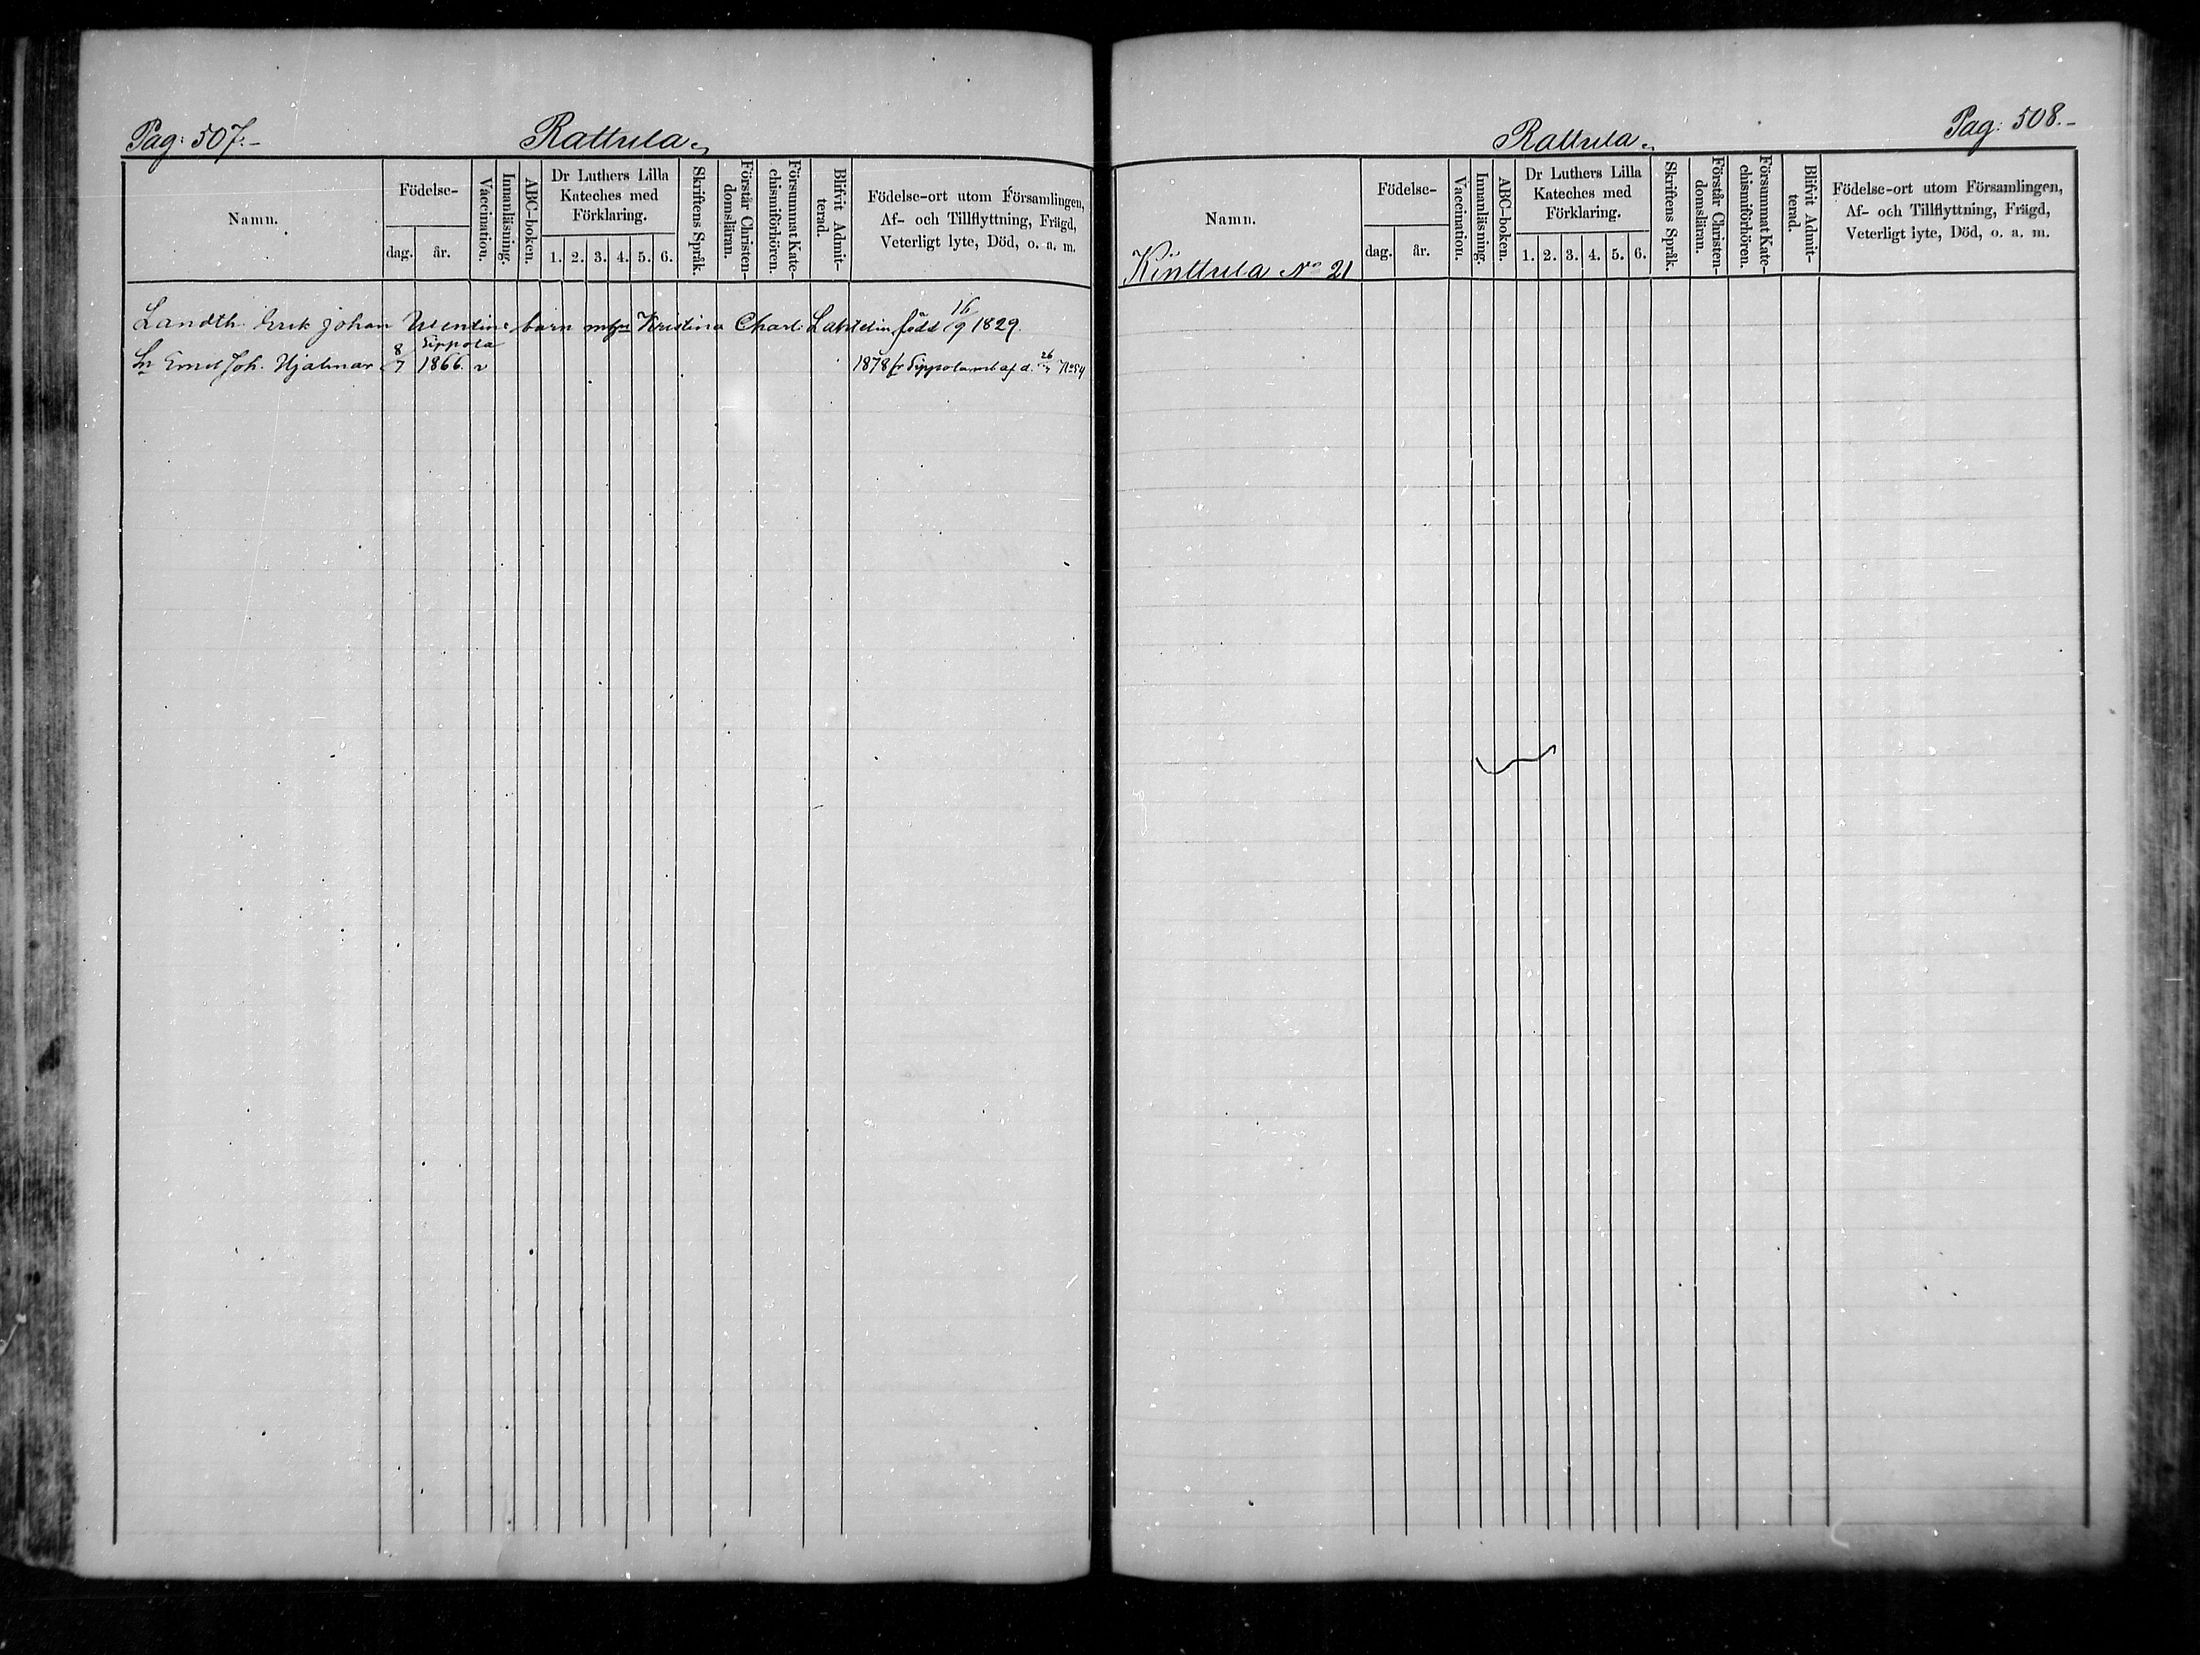 Pag: 507.-
Rattula.
Namn.
Födelse-
dag.
år.
Vaccination.
Innanläsning.
ABC-boken.
Dr Luthers Lilla
Kateches med
Förklaring.
1. 2. 3. 4. 5. 6.
Skriftens Språk.
Förstår Christen-
domsläran.
Försummat Kate-
chismiförhören.
Blifvit Admit-
terad.
Födelse-ort utom Församlingen,
Af- och Tillflyttning, Frägd,
Veterligt lyte, Död, o. a. m.
Landth. Erik Johan barn Kristina Charl. född 16/9 1829.
Sippola
Emil Joh. Hjalmar 8/7 1866. v 1878 fr Sippola
Rattula.
Pag: 508.-
Namn.
Kinttula No 21
Födelse-
dag.
år.
Vaccination.
Innanläsning.
ABC-boken.
Dr Luthers Lilla
Kateches med
Förklaring.
1. 2. 3. 4. 5. 6.
Skriftens Språk.
Förstår Christen-
domsläran.
Försummat Kate-
chismiförhören.
Blifvit Admit-
terad.
Födelse-ort utom Församlingen,
Af- och Tillflyttning, Frägd,
Veterligt lyte, Död, o. a. m.